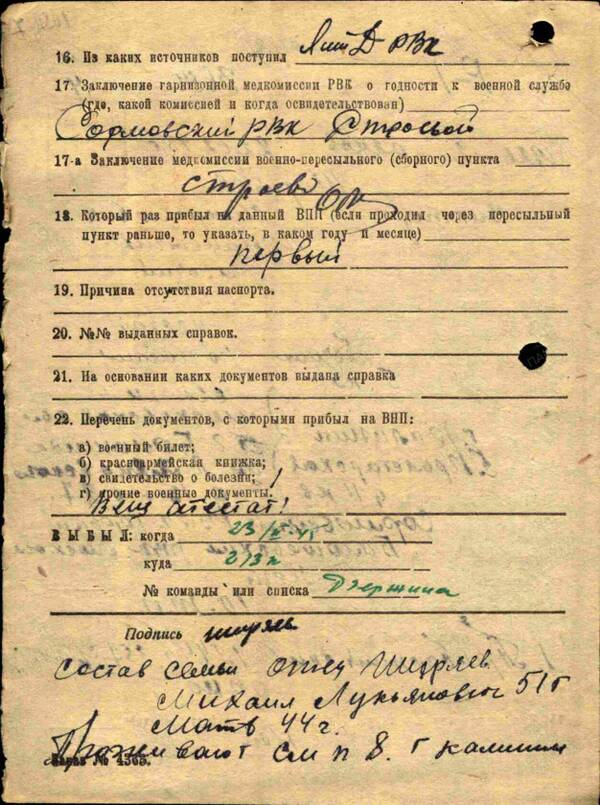 16. Из каких источников поступил РВК
17. Заключение гарнизонной медкомиссии РВК о годности к военной службе
(где, какой комиссией и когда освидетельствован)
Сормовский РВК Строевой
17-а Заключение медкомиссии военно-пересыльного (сборного) пункта
строево
18. Который раз прибыл на данный ВПП (если проходил через пересыльный
пункт раньше, то указать, в каком году и месяце)
первый
19. Причина отсутствия паспорта.
20. №№ выданных справок.
21. На основании каких документов выдана справка
22. Перечень документов, с которыми прибыл на ВПП:
а) военный билет;
б) красноармейская книжка;
в) свидетельство о болезни;
г) прочие военные документы.
Вещ аттестат
ВЫБЫЛ: когда 23
куда 213
№ команды или списка
Подпись ширяев
Состав семьи отец Ширяев
Михаил Лукьянович 51 г
Мать 44 г.
Проживают г калинин
Заказ № 4365.